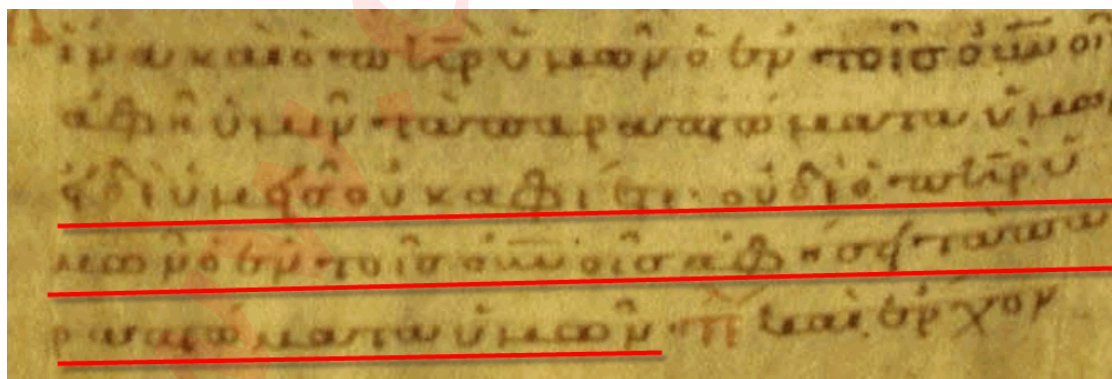 ἵνα καὶ ὁ πη̅ρ ὑμῶν ὁ ἐν τοῖς οὐνοῖ
ἀφῆ ὑμῖν τὰ παραπτώματα ὑμῶ
εἰ δὲ ὑμεῖς οὐκ ἀφίετε· οὐδὲ ὁ πη̅ρ ὑ
μῶν ὁ ἐν τοῖς οὐνοῖς ἀφήσει τὰ πα
ραπτώματα ὑμῶν· καὶ ἔρχον